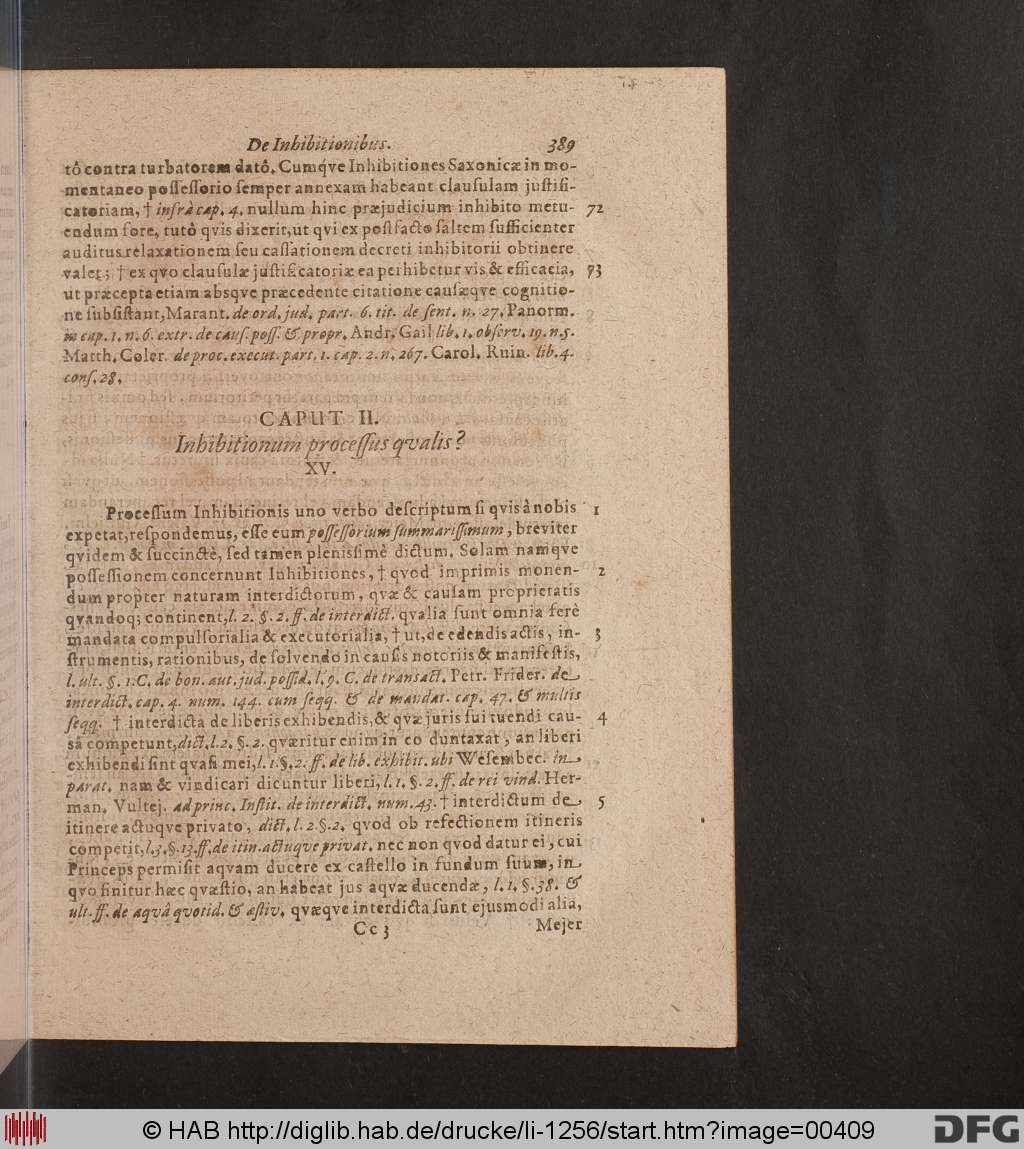 De Inhibitionibus. 389
tô contra turbatorem datô. Cumq́ve Inhibitiones Saxonicæ in mo-
mentaneo possessorio semper annexam habeant clausulam justifi-
catoriam, † infrà cap. 4. nullum hinc præjudicium inhibito metu- 72
endum fore, tutô qvis dixerit, ut qvi ex postfacto saltem sufficienter
auditus relaxationem seu cassationem decreti inhibitorii obtinere
valet; † ex qvo clausulæ justificatoriæ ea perhibetur vis & efficacia, 73
ut præcepta etiam absqve præcedente citatione causæqve cognitio-
ne subsistant, Marant. de ord. jud. part. 6. tit. de sent. n. 27. Panorm.
in cap. 1. n. 6. extr. de caus. poss. & propr. Andr. Gail lib. 1. observ. 19. n. 5.
Matth. Coler. de proc. execut. part. 1. cap. 2. n. 267. Carol. Ruin. lib. 4.
cons. 28.
CAPUT II.
Inhibitionum processus qvalis?
XV.
Processum Inhibitionis uno verbo descriptum si qvis à nobis 1
expetat, respondemus, esse eum possessorium summarissimum, breviter
qvidem & succinctè, sed tamen plenissimè dictum. Solam namqve
possessionem concernunt Inhibitiones, † qvod imprimis monen- 2
dum propter naturam interdictorum, qvæ & causam proprietatis
qvandoq; continent, l. 2. §. 2. ff. de interdict. qvalia sunt omnia ferè
mandata compulsorialia & executorialia, † ut, de edendis actis, in- 3
strumentis, rationibus, de solvendo in causis notoriis & manifestis,
l. ult. §. 1. C. de bon. aut. jud. possid. l. 9. C. de transact. Petr. Frider. de
interdict. cap. 4. num. 144. cum seqq. & de mandat. cap. 47. & multis
seqq. † interdicta de liberis exhibendis, & qvæ juris sui tuendi cau- 4
sâ competunt, dict. l. 2. §. 2. qværitur enim in eo duntaxat, an liberi
exhibendi sint qvasi mei, l. 1. §. 2. ff. de lib. exhibit. ubi Wesembec. in
parat. nam & vindicari dicuntur liberi, l. 1. §. 2. ff. de rei vind. Her-
man. Vultej. ad princ. Instit. de interdict. num. 43. † interdictum de 5
itinere actuqve privato, dict. l. 2. §. 2. qvod ob refectionem itineris
competit, l. 3. §. 13. ff. de itin. actuque privat. nec non qvod datur ei, cui
Princeps permisit aqvam ducere ex castello in fundum suum, in
qvo finitur hæc qvæstio, an habeat jus aqvæ ducendæ, l. 1. §. 38. &
ult. ff. de aquâ quotid. & æstiv. qvæqve interdicta sunt ejusmodi alia,
Cc 3 Mejer
© HAB http://diglib.hab.de/drucke/li-1256/start.htm?image=00409
DFG